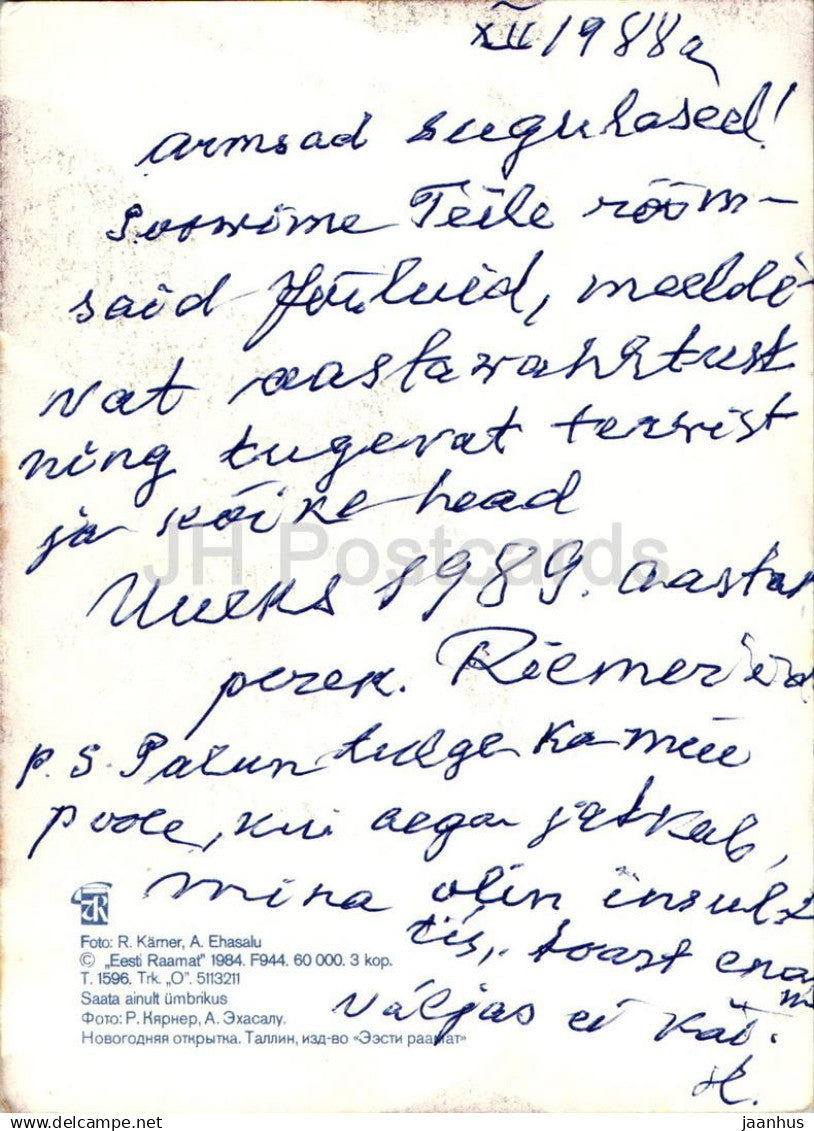 XII 1988a
Armsad sugulased!
Soovime Teile rõõm-
said Jõuluid, meeldi-
vat aastavahetust
ning tugevat tervist
ja kõike head
Uueks 1989. aastaks
perek. Riemer'id
P.S. Palun tulge ka meie
poole, kui aega jätkub,
mina olin insul
tis, toast enam
väljas ei käi.
H.
JH Postcards
TR
Foto: R. Kärner, A. Ehasalu
© „Eesti Raamat" 1984. F944. 60 000. 3 kop.
T. 1596. Trk. „O". 5113211
Saata ainult ümbrikus
Фото: Р. Кярнер, А. Эхасалу.
Новогодняя открытка. Таллин, изд-во «Ээсти раамат»
jaanhus